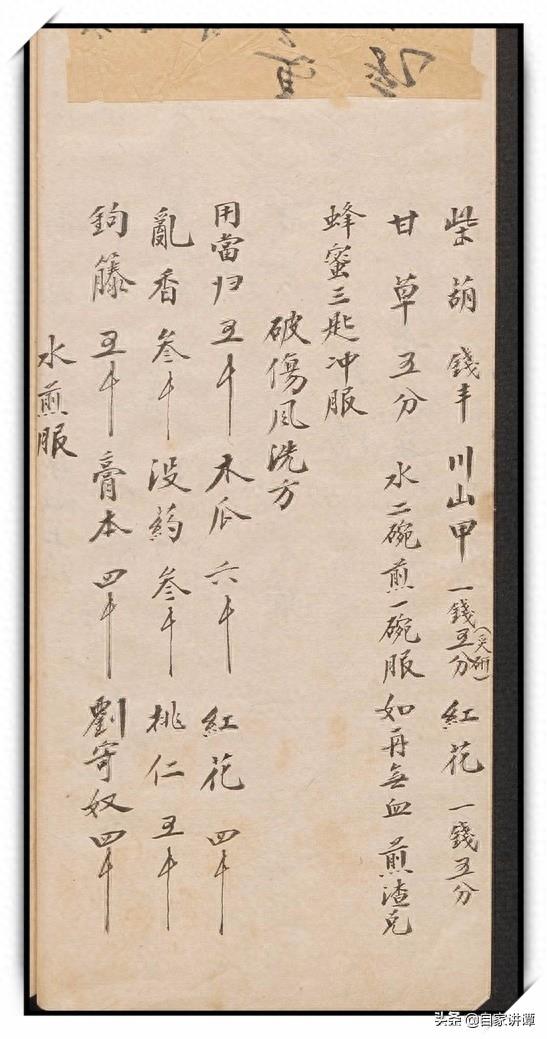 柴葫 錢半 川山甲 一錢五分(炙研) 紅花 一錢五分
甘草 五分 水二碗煎一碗服如再無血煎渣克
蜂蜜三匙冲服
破傷风洗方
用當归 五千 木瓜 六千 紅花 四千
亂香 叁千 没药 叁千 桃仁 五千
鉤藤 五千 膏本 四千 劉寄奴 四千
水煎服
头条 @自家讲谭